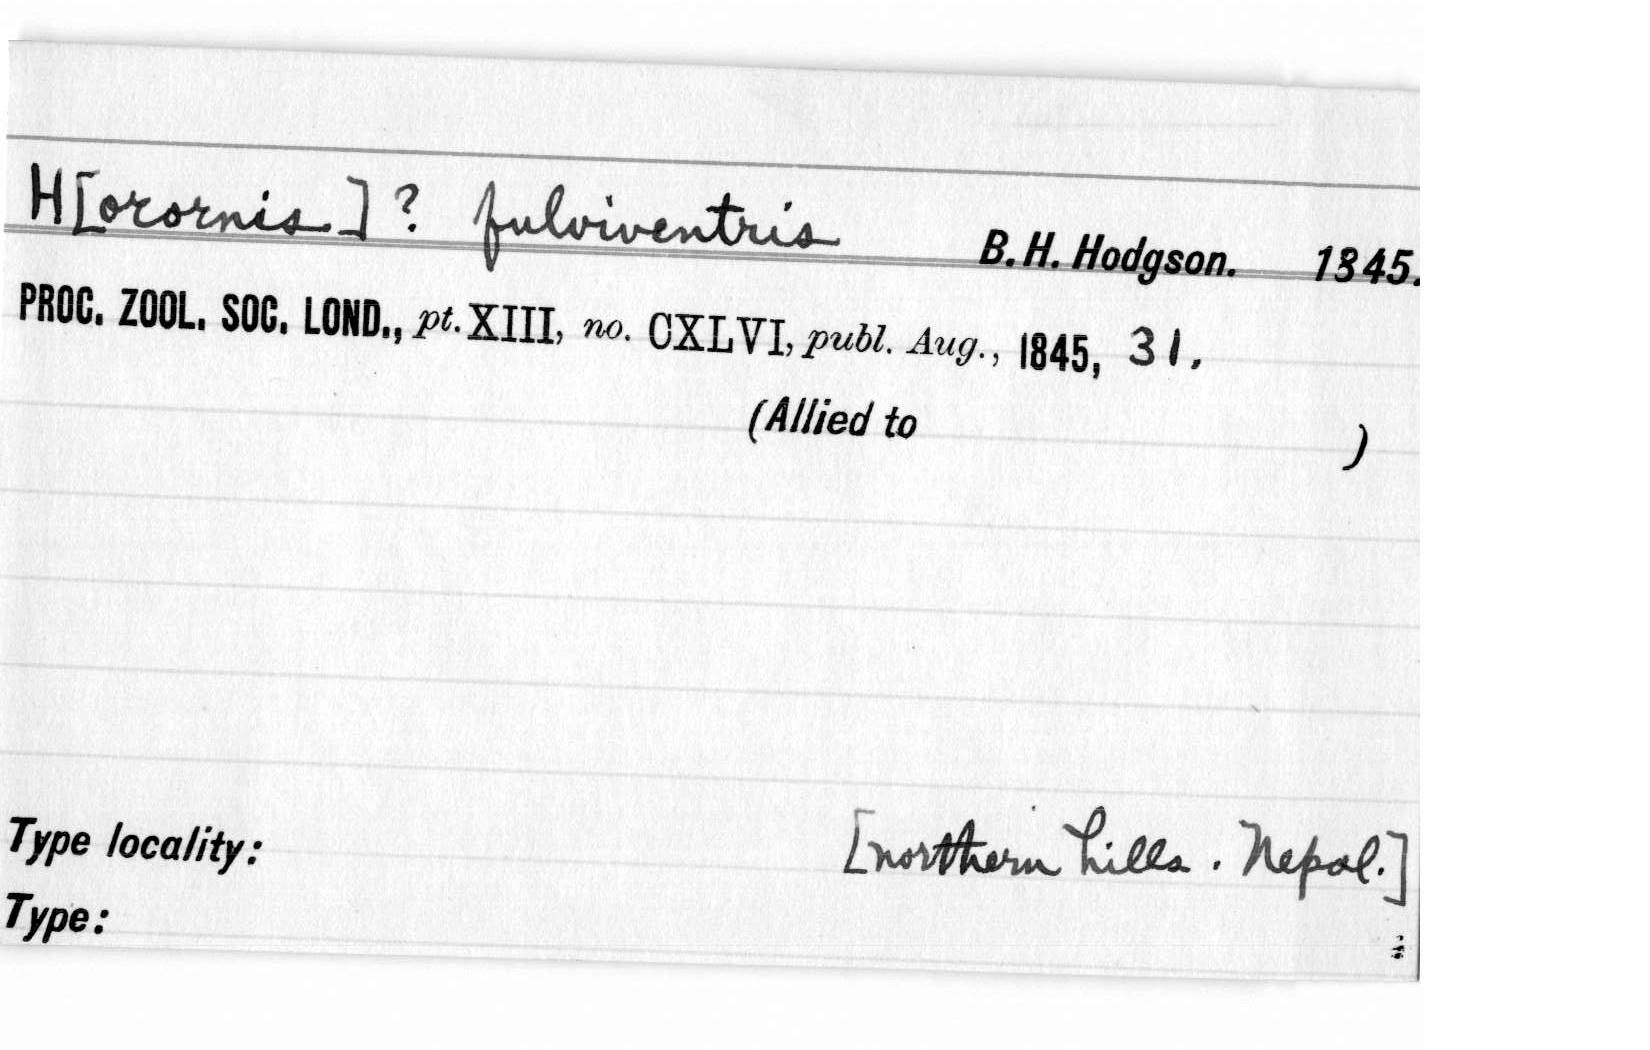 H[orornis] ? fulviventris B. H. Hodgson. 1845.
PROC. ZOOL. SOC. LOND., pt. XIII, no. CXLVI, publ. Aug., 1845, 31.
(Allied to )
Type locality: [northern hills . Nepal.]
Type: